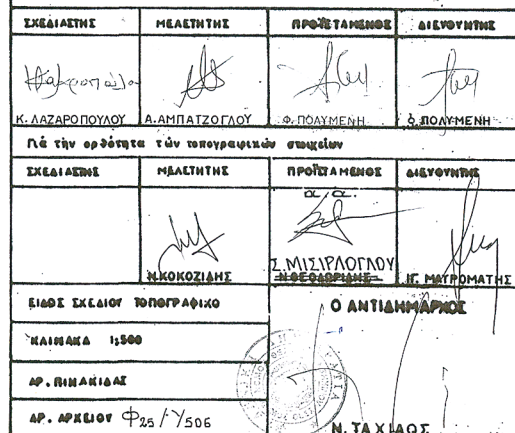 ΣΧΕΔΙΑΣΤΗΣ ΜΕΛΕΤΗΤΗΣ ΠΡΟΪΣΤΑΜΕΝΟΣ ΔΙΕΥΘΥΝΤΗΣ
Κ. ΛΑΖΑΡΟΠΟΥΛΟΥ Α. ΑΜΠΑΤΖΟΓΛΟΥ Φ. ΠΟΛΥΜΕΝΗ Φ. ΠΟΛΥΜΕΝΗ
Γιά τήν ορθότητα τών τοπογραφικών στοιχείων
ΣΧΕΔΙΑΣΤΗΣ ΜΕΛΕΤΗΤΗΣ ΠΡΟΪΣΤΑΜΕΝΟΣ ΔΙΕΥΘΥΝΤΗΣ
α.α.
Σ. ΜΙΣΙΡΛΟΓΛΟΥ
Ν. ΚΟΚΟΖΙΔΗΣ Ν. ΘΕΟΔΩΡΙΔΗΣ Π. ΜΑΥΡΟΜΑΤΗΣ
ΕΙΔΟΣ ΣΧΕΔΙΟΥ ΤΟΠΟΓΡΑΦΙΚΟ
Ο ΑΝΤΙΔΗΜΑΡΧΟΣ
ΚΛΙΜΑΚΑ 1:500
ΑΡ. ΠΙΝΑΚΙΔΑΣ
ΑΡ. ΑΡΧΕΙΟΥ Φ25/Υ506
Ν. ΤΑΧΙΑΟΣ